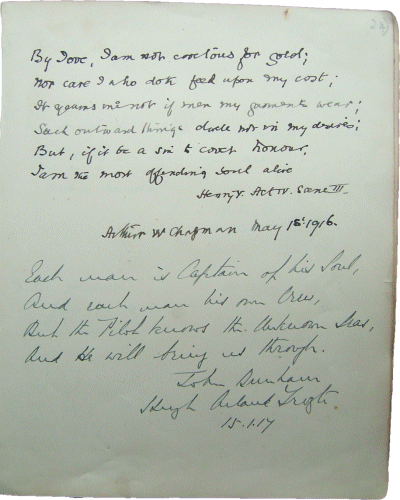 By Jove, I am not covetous for gold;
Nor care I who doth feed upon my cost;
It yearns me not if men my garments wear;
Such outward things dwell not in my desires;
But, if it be a sin to covet honour,
I am the most offending soul alive
Henry V. Act IV. Scene III.
Arthur W Chapman May 15th 1916.
Each man is Captain of his Soul,
And each man his own Crew,
But the Pilot knows the Unknown Seas,
And He will bring us through.
John Dunham
Hugh
15.1.17